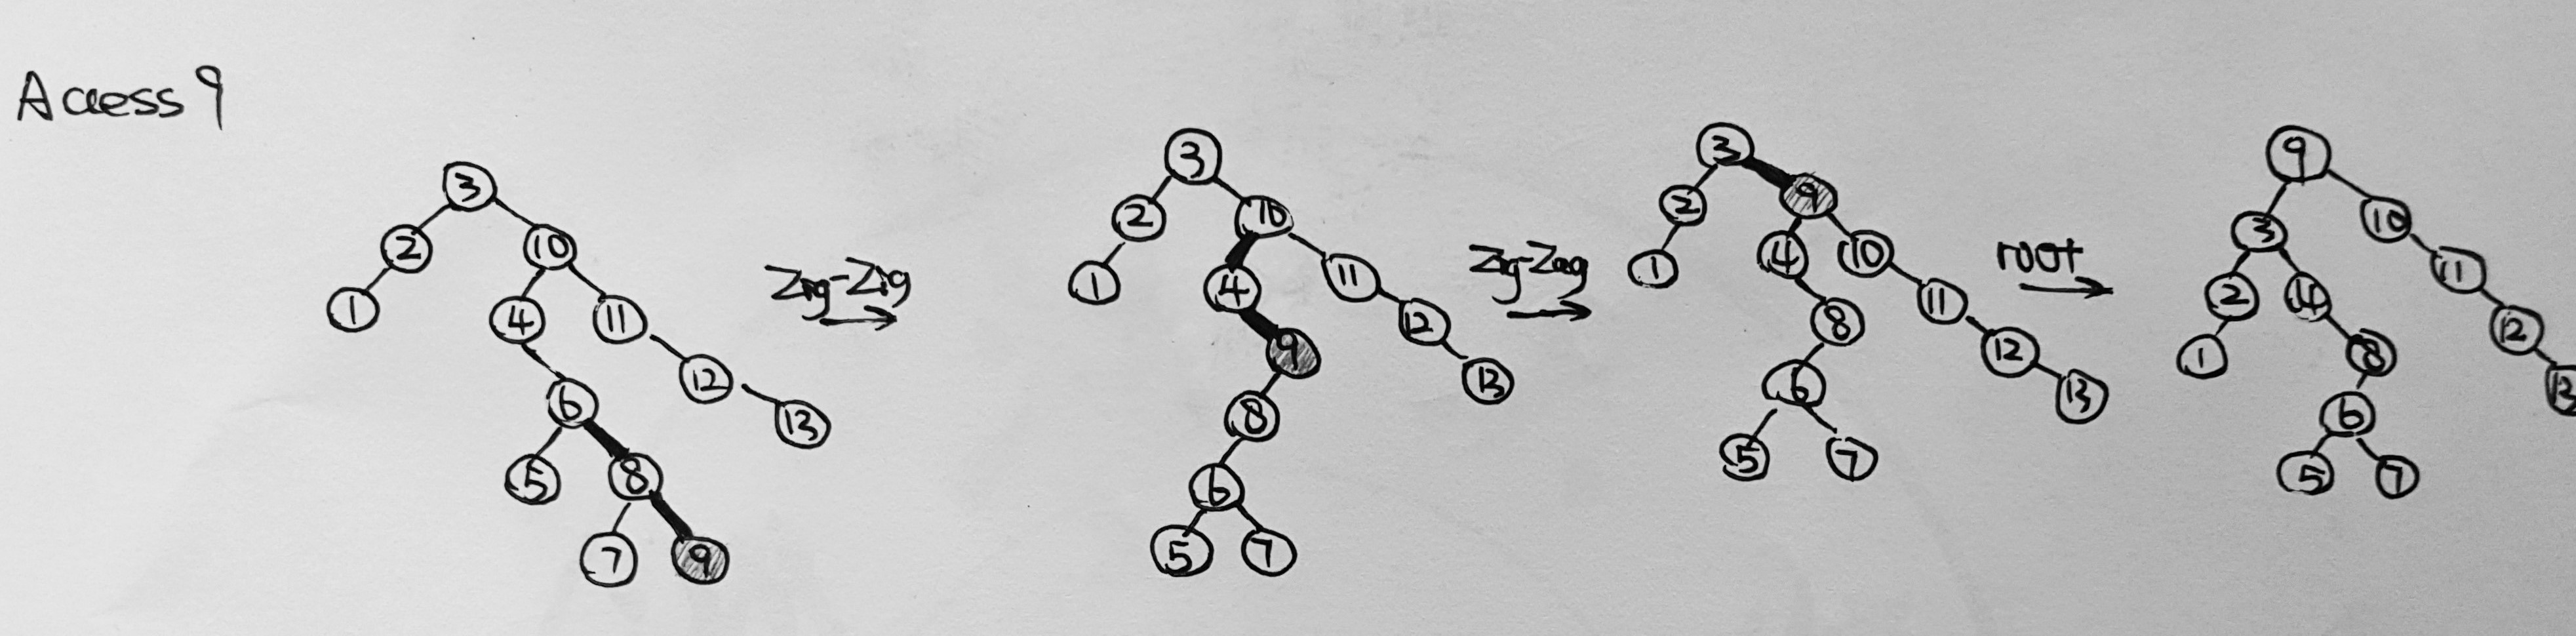 Access 9
3
2 10
1 4 11
6 12
5 8 13
7 9
Zig-Zig
3
2 10
1 4 11
9 12
8 13
6
5 7
Zig-Zag
3
2 9
1 4 10
8 11
6 12
5 7 13
root
9
3 10
2 4 11
1 8 12
6 13
5 7